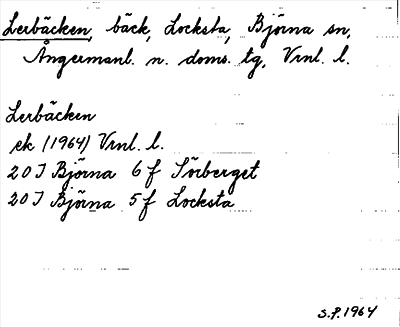 Lerbäcken, bäck, Locksta, Björna sn,
Ångermanl. n. doms. tg, Vrnl. l.
Lerbäcken
ek (1964) Vrnl. l.
20 J Björna 6 f Sörberget
20 J Björna 5 f Locksta
S.P. 1964